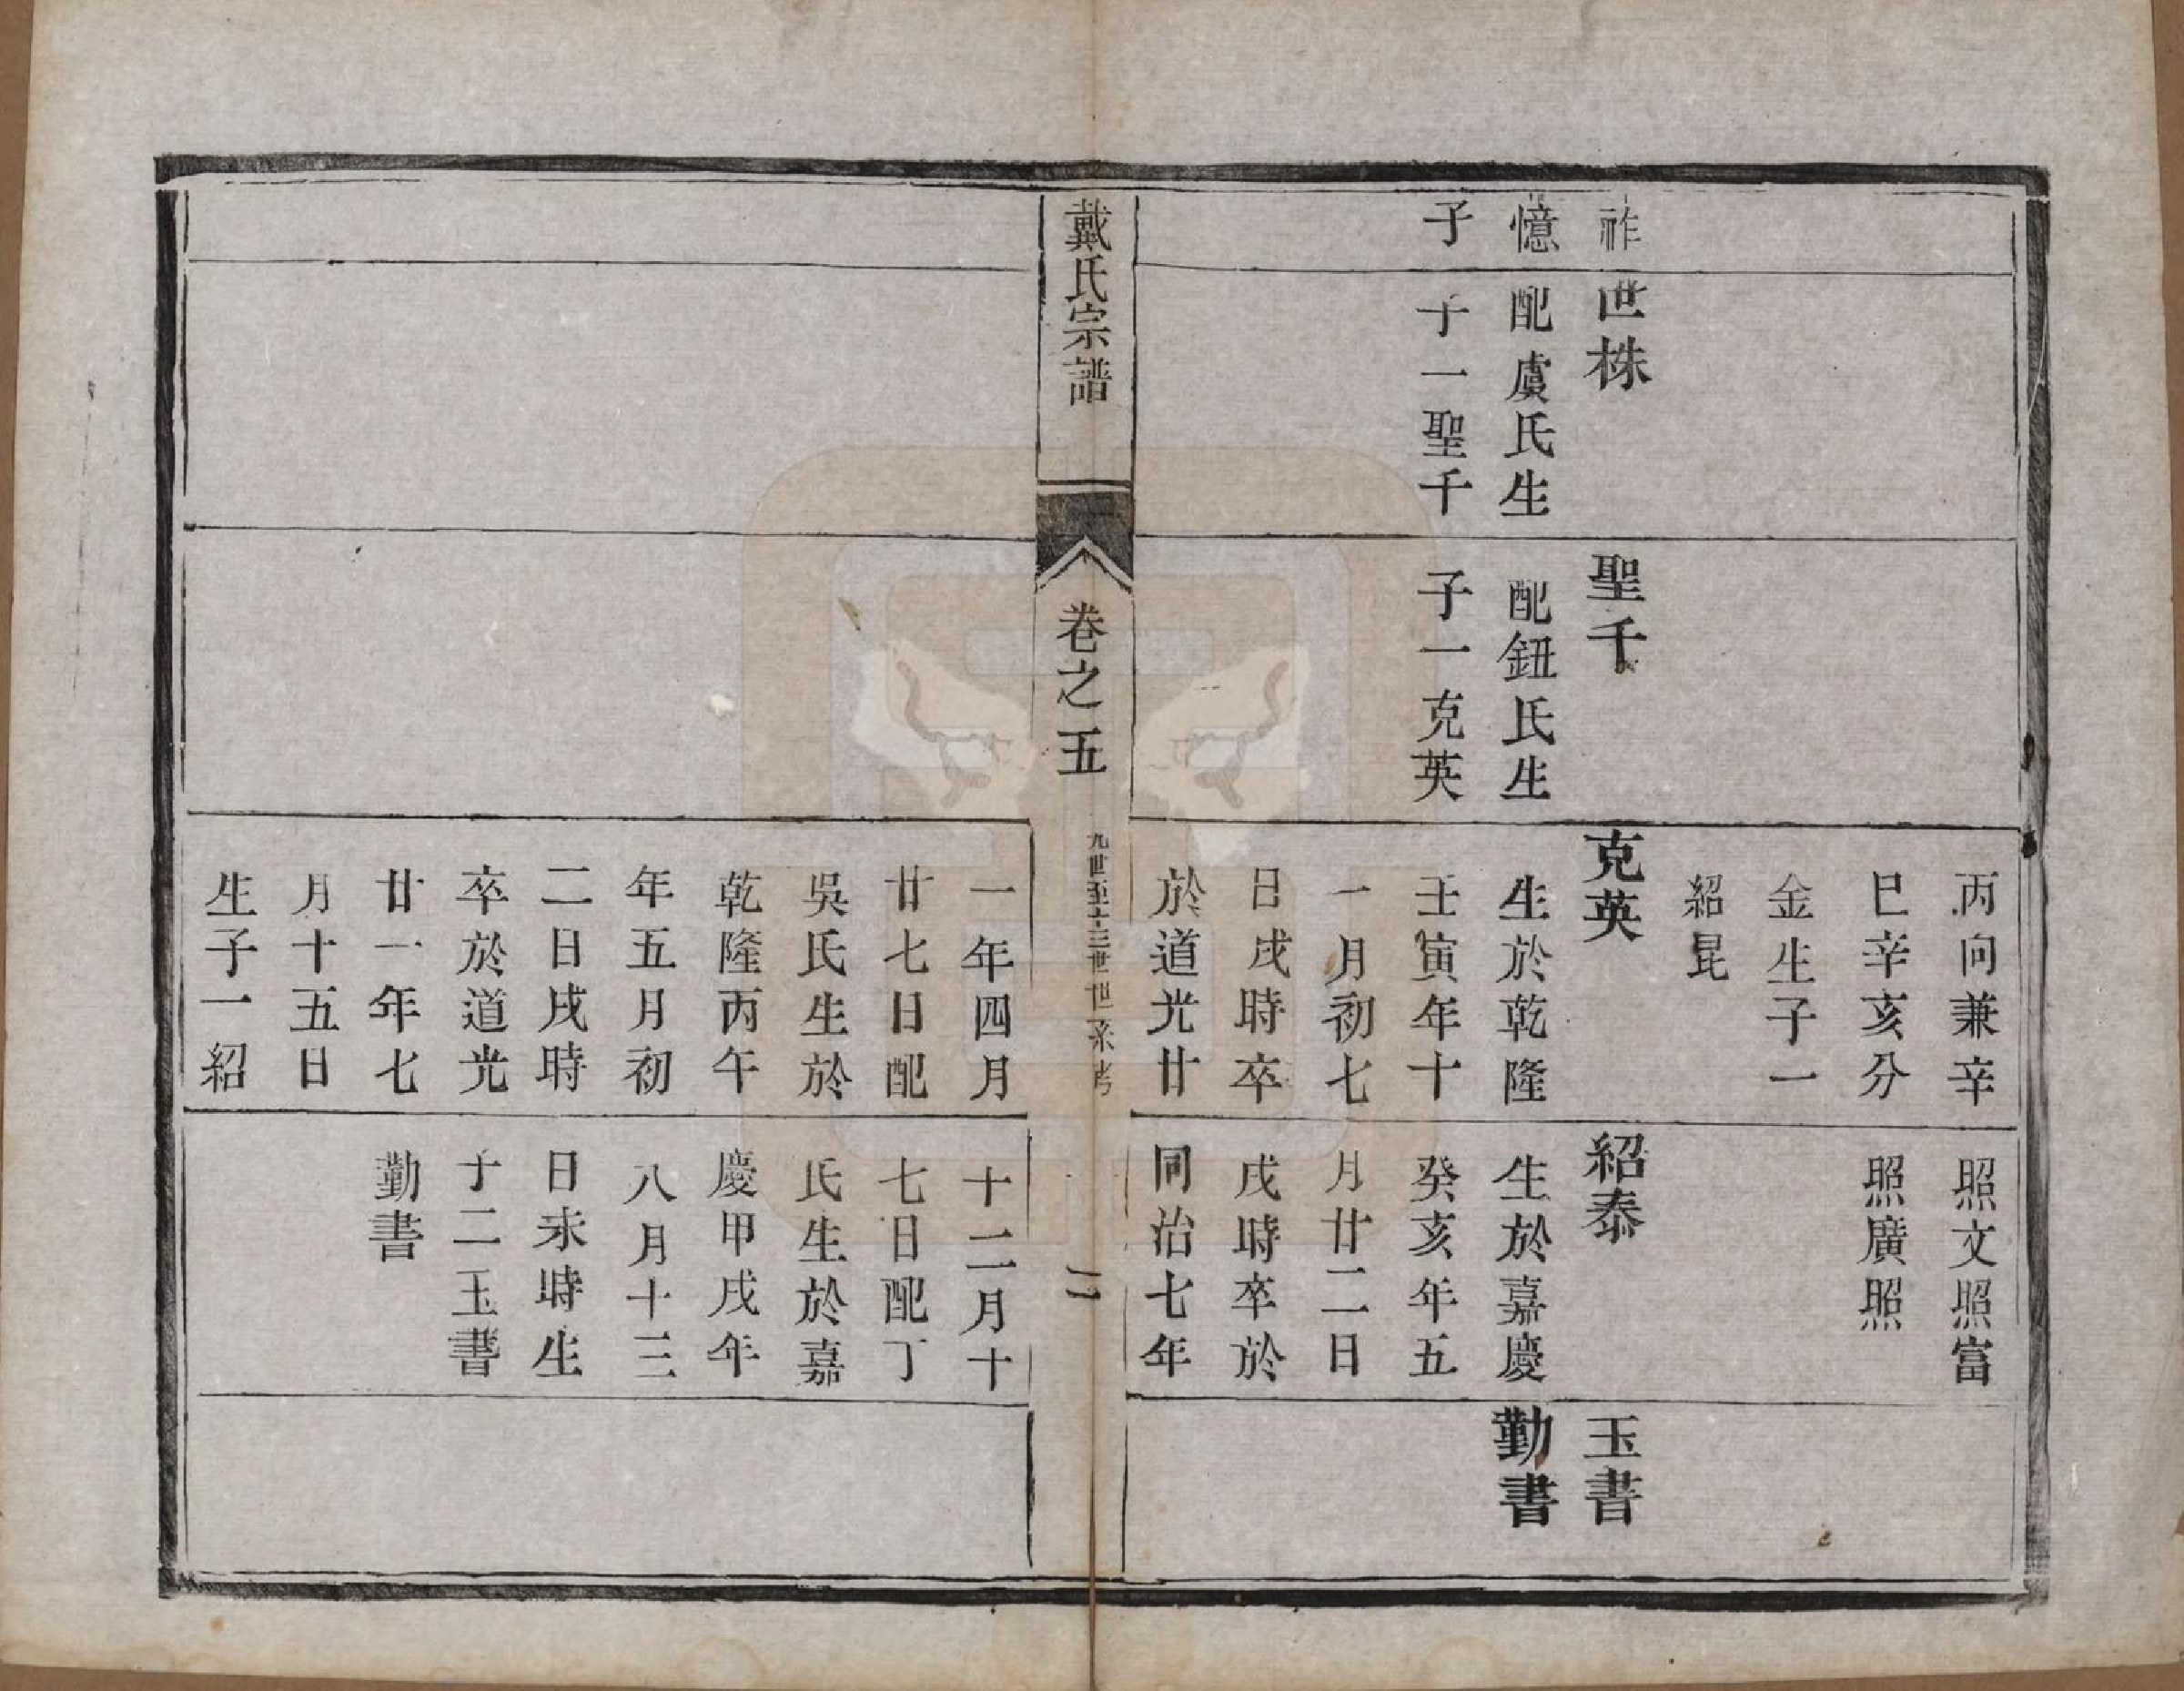 祚
憶
子
世株
配虞氏生
子一聖千
聖千
配鈕氏生
子一克英
丙向兼辛
巳辛亥分
金生子一
紹昆
克英
生於乾隆
壬寅年十
一月初七
日戌時卒
於道光廿
照文照富
照廣照
紹泰
生於嘉慶
癸亥年五
月廿二日
戌時卒於
同治七年
玉書
勤書
戴氏宗譜
卷之五
九世至十三世世系考
二
一年四月
廿七日配
吳氏生於
乾隆丙午
年五月初
二日戌時
卒於道光
廿一年七
月十五日
生子一紹
十二月十
七日配丁
氏生於嘉
慶甲戌年
八月十三
日未時生
子二玉書
勤書